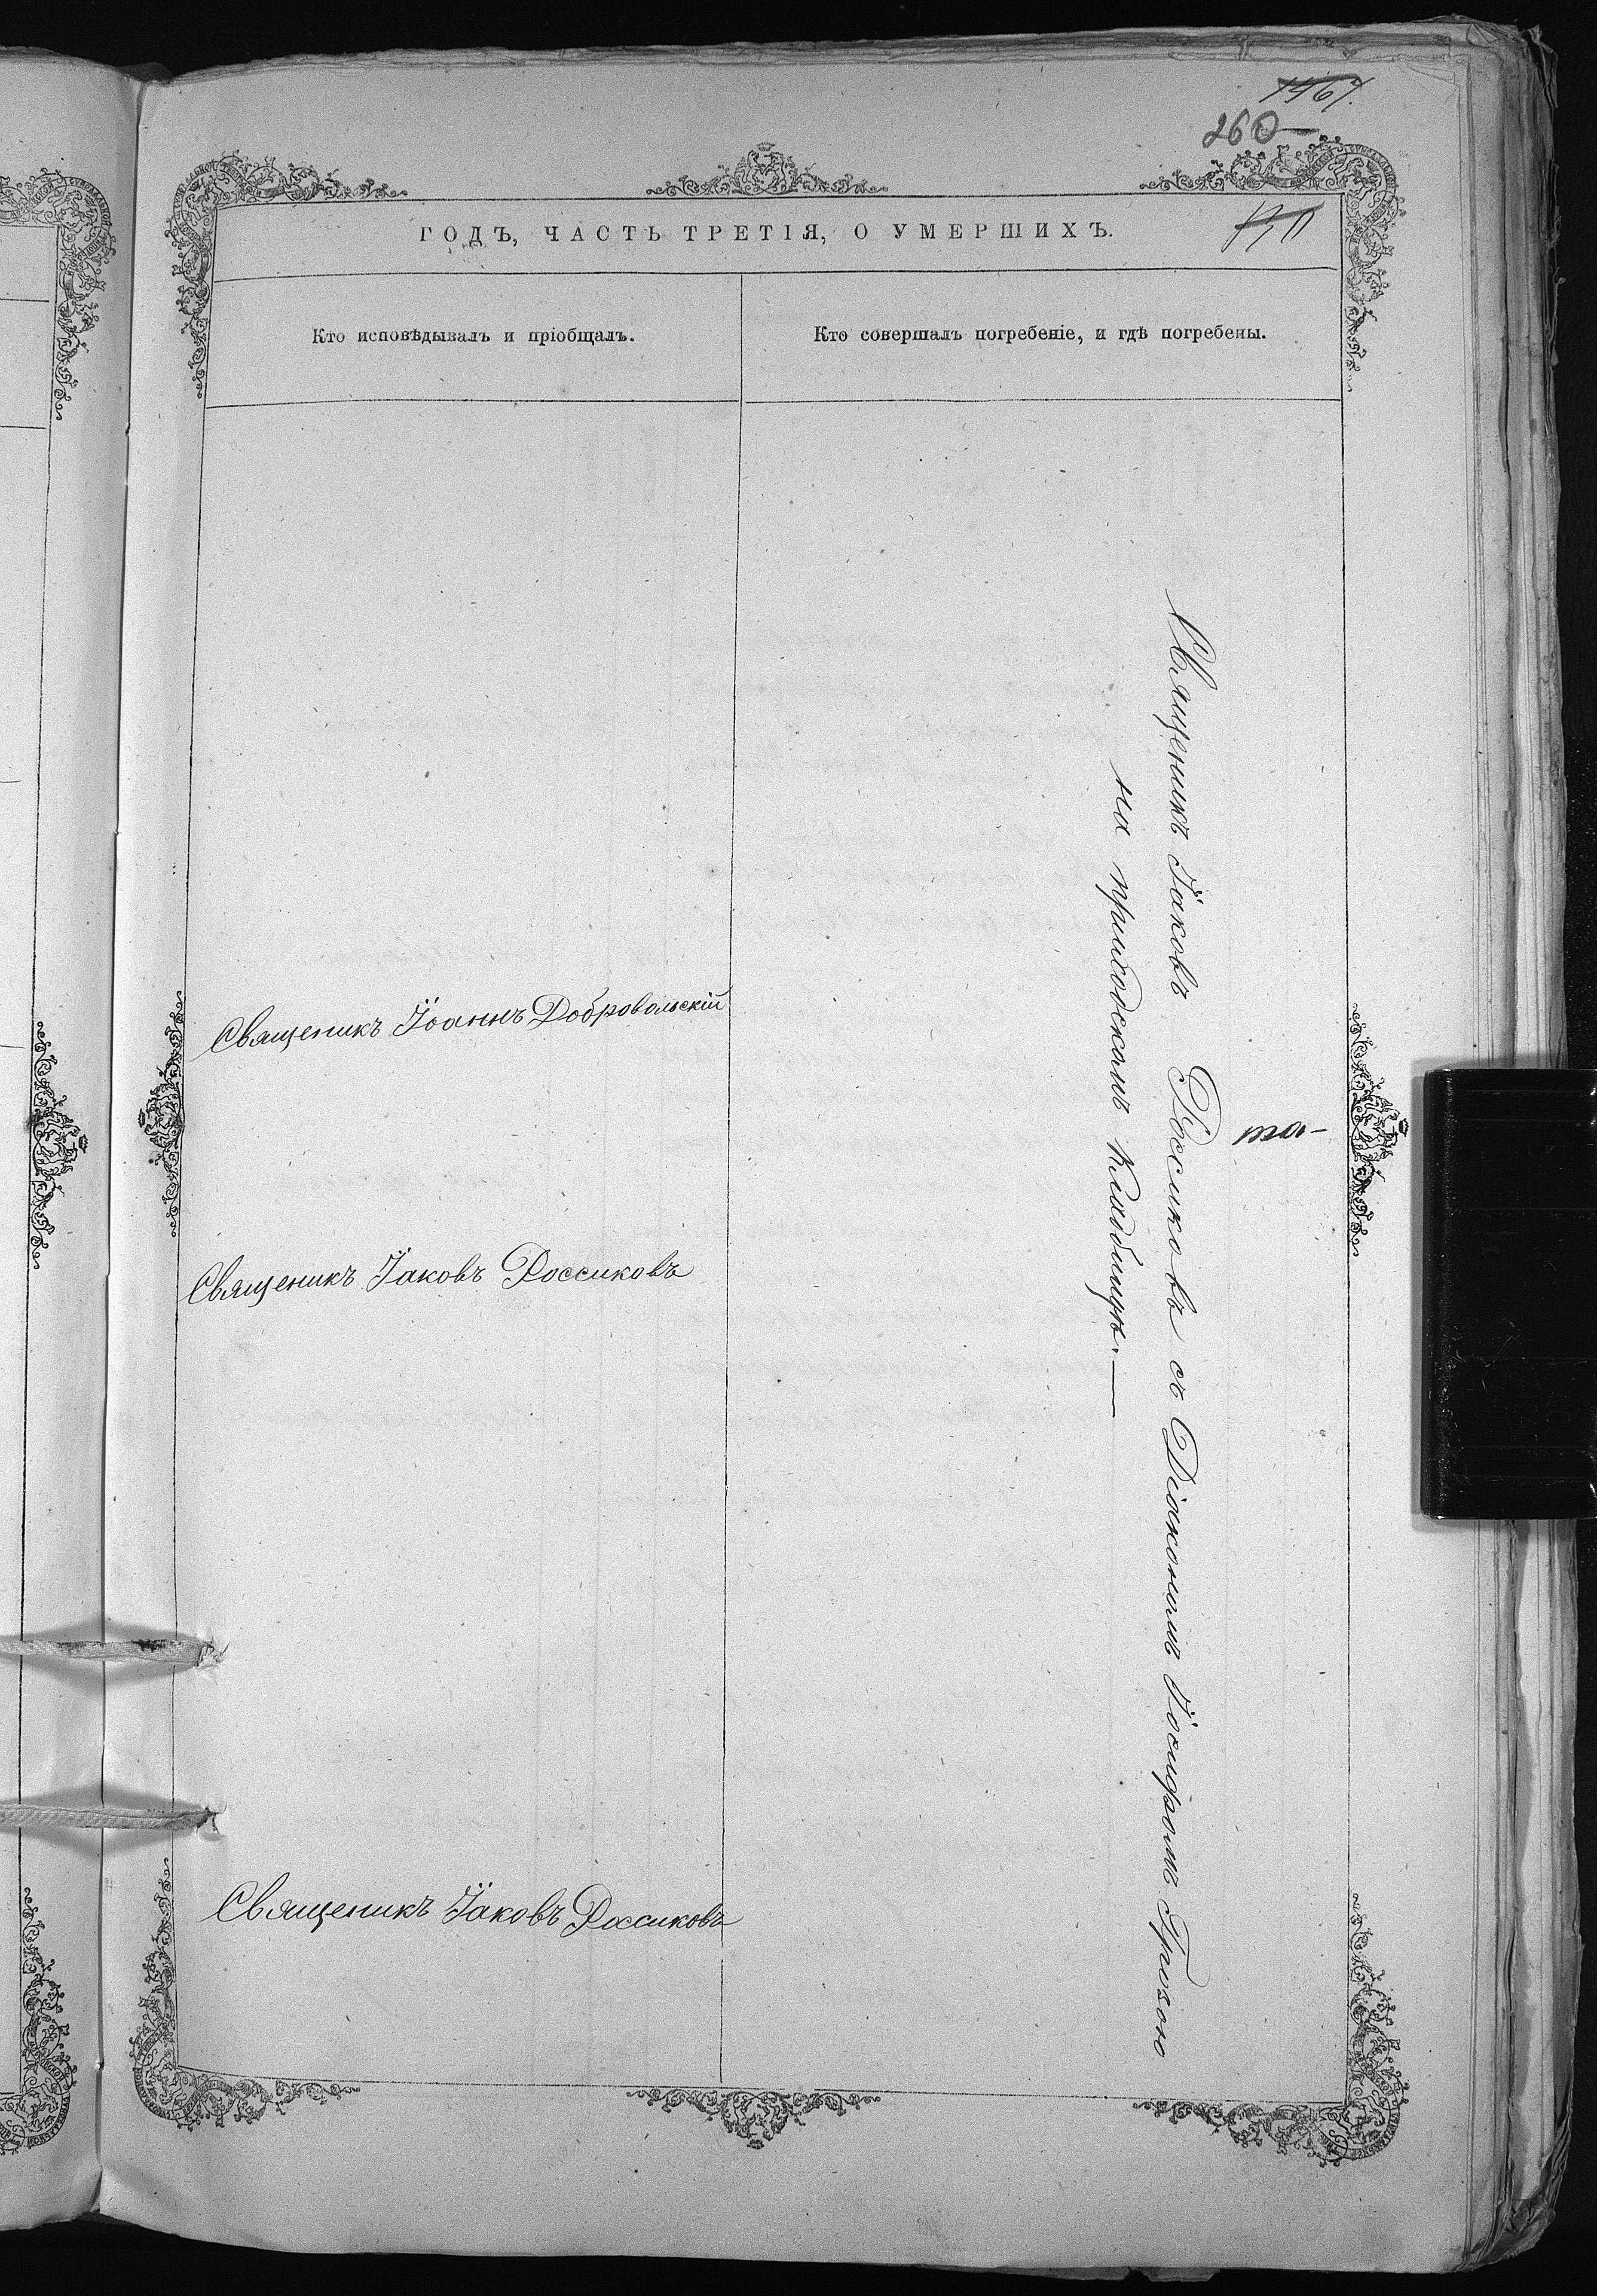 1467.
260
ГОДЪ, ЧАСТЬ ТРЕТІЯ, О УМЕРШИХЪ.
Кто исповѣдывалъ и пріобщалъ.
Кто совершалъ погребеніе, и гдѣ погребены.
Священикъ Їоаннъ Добровольскій
Священикъ Їаковъ Россиковъ
Священикъ Їаковъ Россиковъ
та-
Священикъ Їаковъ Россиковъ съ Діакономъ Їосифомъ Гризою
на приходскомъ кладбищѣ.—